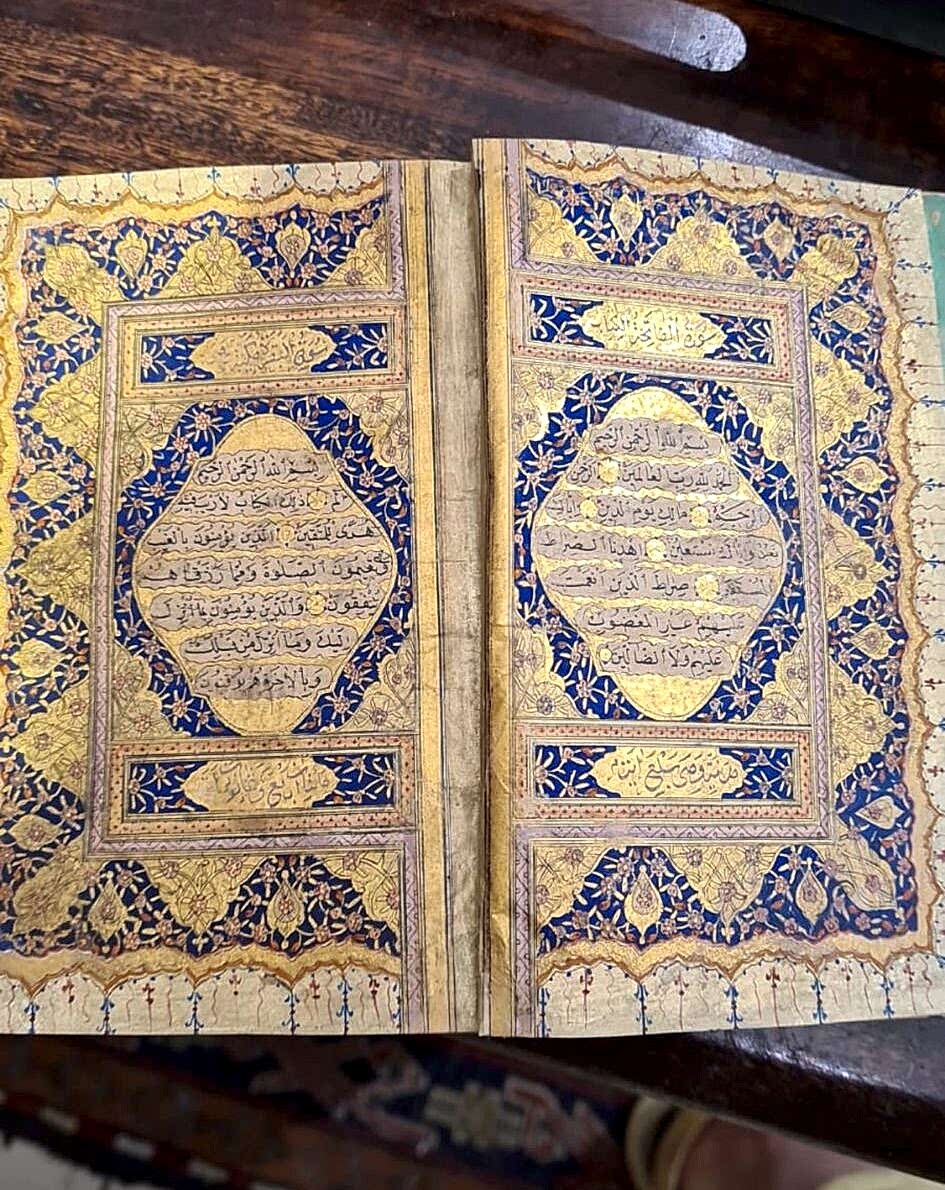 سورة الفاتحة الكتاب
بسم الله الرحمن الرحيم
الحمد لله رب العالمين الرحمن
الرحيم مالك يوم الدين اياك
نعبد واياك نستعين اهدنا الصراط
المستقيم صراط الذين انعمت
عليهم غير المغضوب
عليهم ولا الضالين
سورة البقرة
بسم الله الرحمن الرحيم
الم ذلك الكتاب لا ريب فيه
هدى للمتقين الذين يؤمنون بالغيب
ويقيمون الصلوة ومما رزقناهم
ينفقون والذين يؤمنون بما انزل
اليك وما انزل من قبلك
وبالاخرة هم يوقنون